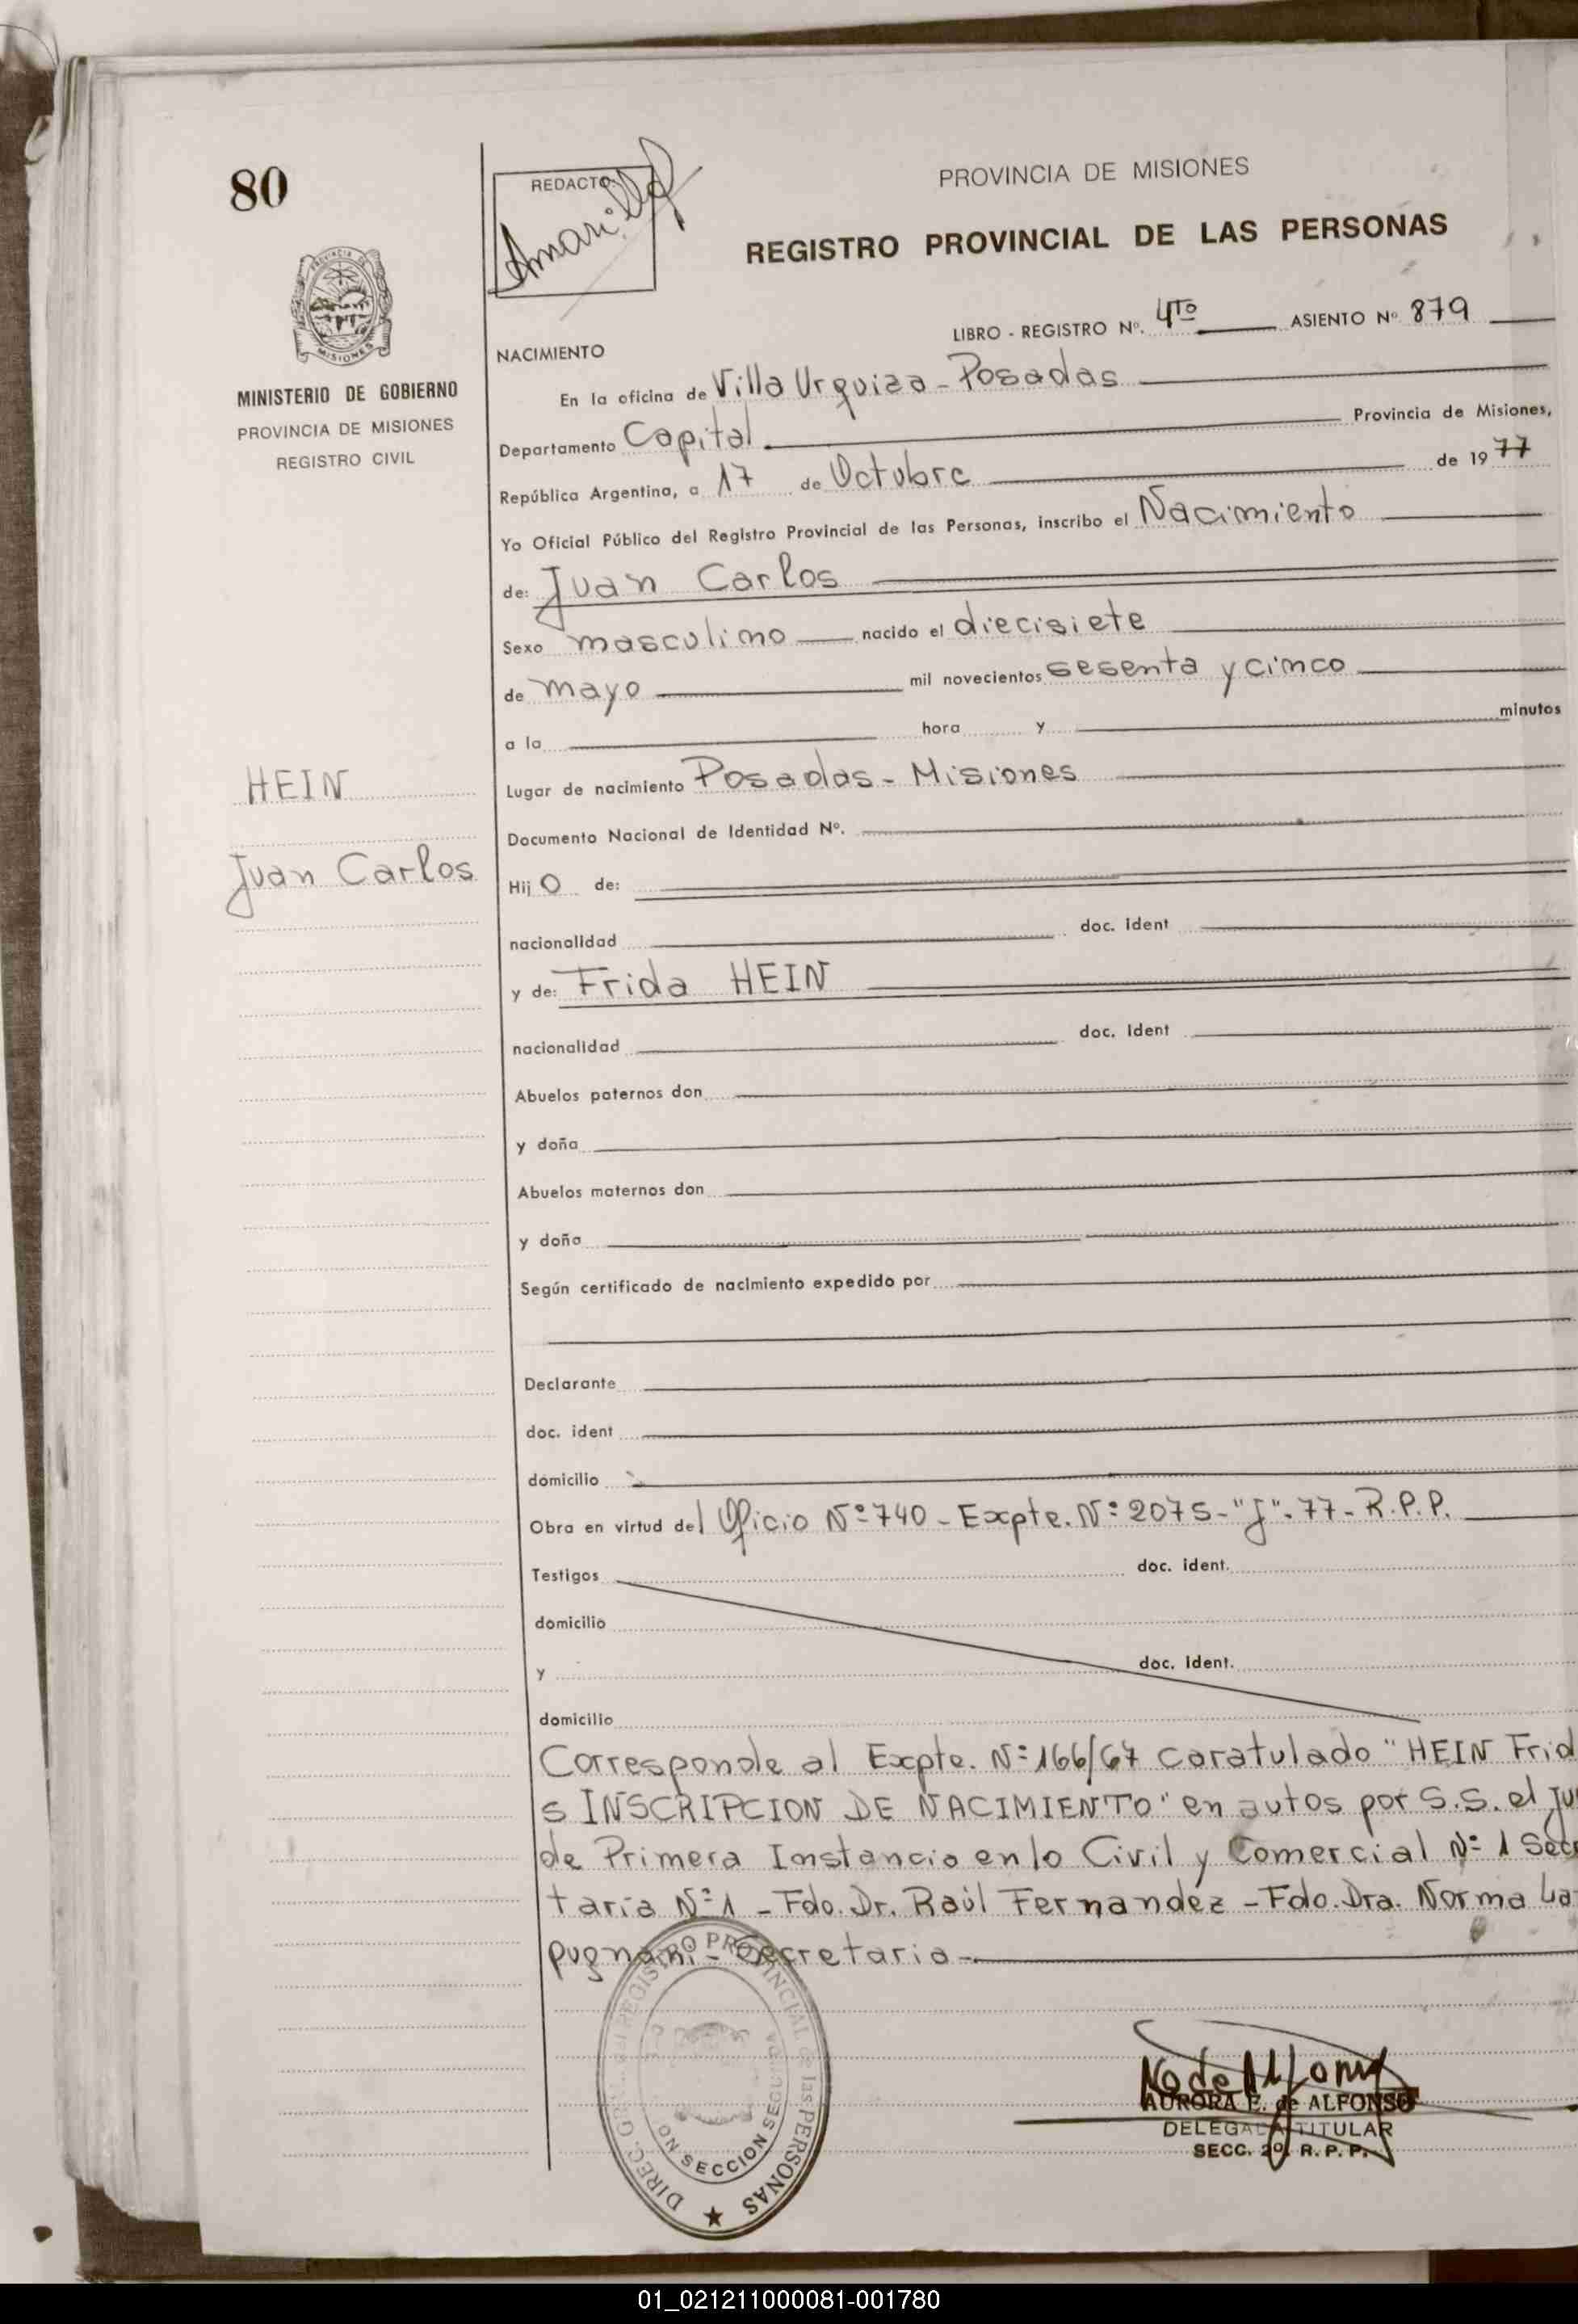 80
REDACTO:
Amarilla
PROVINCIA DE MISIONES
REGISTRO PROVINCIAL DE LAS PERSONAS
PROVINCIA DE
MISIONES
MINISTERIO DE GOBIERNO
PROVINCIA DE MISIONES
REGISTRO CIVIL
LIBRO - REGISTRO Nº. 4TO ASIENTO Nº 879
NACIMIENTO
En la oficina de Villa Urquiza - Posadas
Departamento Capital Provincia de Misiones,
República Argentina, a 17 de Octubre de 1977
Yo Oficial Público del Registro Provincial de las Personas, inscribo el Nacimiento
de: Juan Carlos
Sexo masculino nacido el diecisiete
de mayo mil novecientos sesenta y cinco
a la hora y minutos
HEIN
Juan Carlos
Lugar de nacimiento Posadas - Misiones
Documento Nacional de Identidad Nº.
Hij O de:
nacionalidad doc. ident
y de: Frida HEIN
nacionalidad doc. ident
Abuelos paternos don
y doña
Abuelos maternos don
y doña
Según certificado de nacimiento expedido por
Declarante
doc. ident
domicilio
Obra en virtud del Oficio Nº 740 - Expte. Nº 2075 - "J" - 77 - R.P.P.
Testigos doc. ident.
domicilio
y doc. ident.
domicilio
Corresponde al Expte. Nº 166/67 caratulado "HEIN Frid
s INSCRIPCION DE NACIMIENTO" en autos por S.S. el Ju
de Primera Instancia en lo Civil y Comercial Nº 1 Secre
taria Nº 1 - Fdo. Dr. Raúl Fernandez - Fdo. Dra. Norma La
pugnani - Secretaria -
DIREC. GRAL. del REGISTRO PROVINCIAL de las PERSONAS
SECCION SEGUNDA
AURORA E. de ALFONSO
DELEGADA TITULAR
SECC. 2º. R. P. P.
01_021211000081-001780